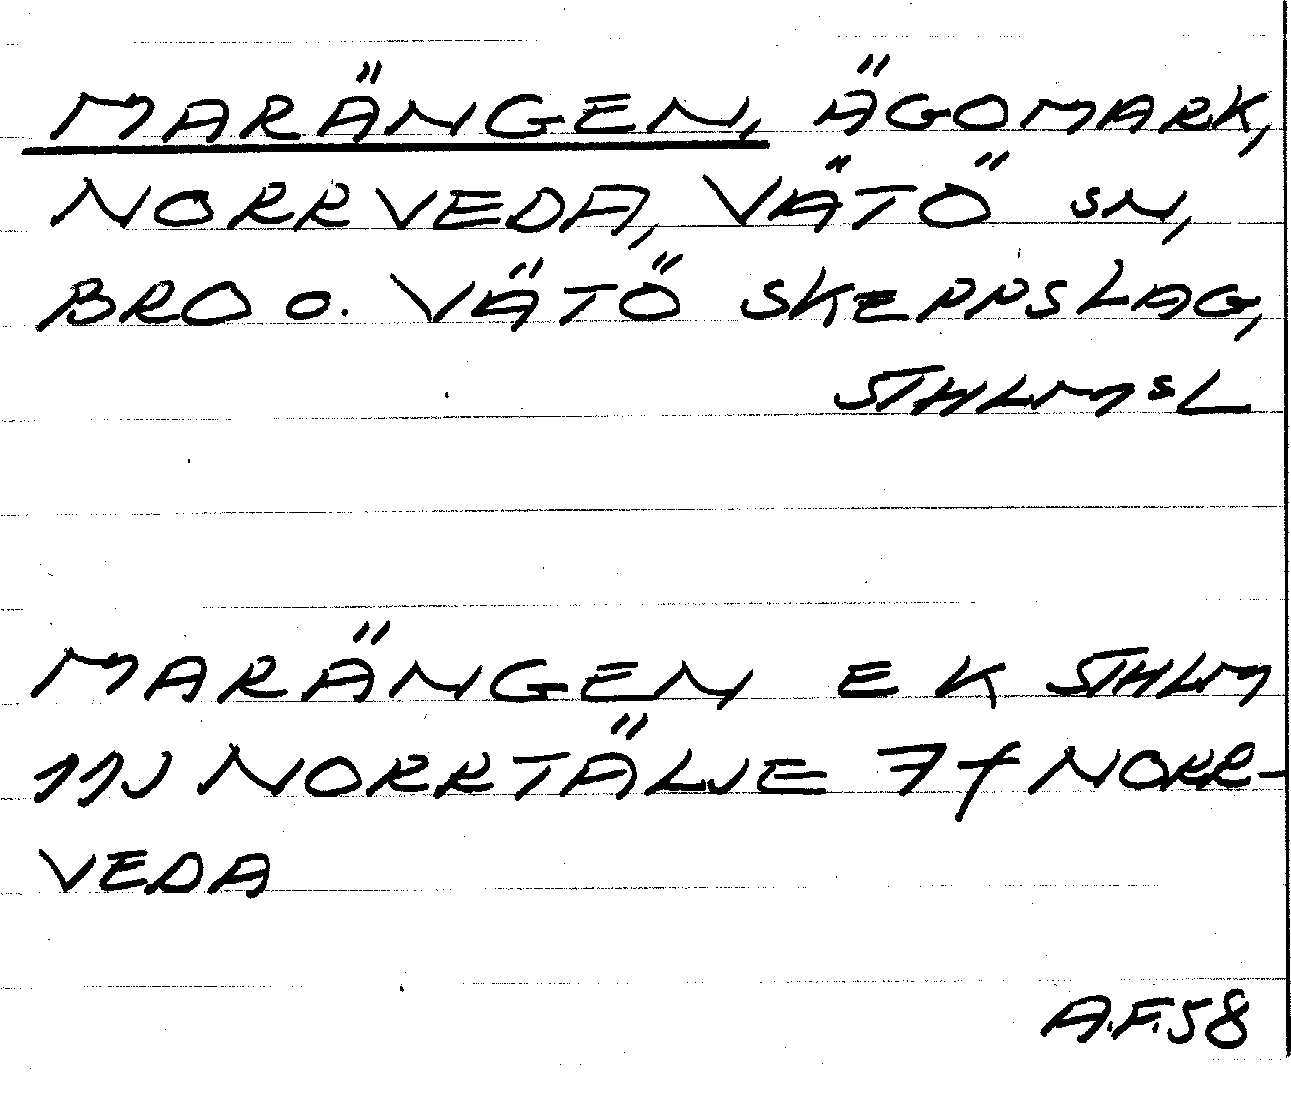 MARÄNGEN, ÄGOMARK,
NORRVEDA, VÄTÖ SN,
BRO O. VÄTÖ SKEPPSLAG,
STHLMSL
MARÄNGEN EK STHLM
11J NORRTÄLJE 7f NORR-
VEDA
A.F.58